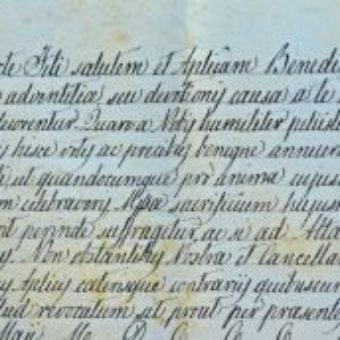 cte Fili salutem et Aplicam Benedi
adventitia seu devotionis causa a te
Quare a Nobis humiliter petiisti
hisce votis ac precibus benigne annuere
ut quandocumque pro anima cujus
celebraveris Missa sacrificium hujusm
perinde suffragetur, ac si ad Alta
Non obstantibus Nostra et Cancella
Aplicis ceterisque contrariis quibuscum
revocatum sit prout per præsente
Maji M. D. C. C. C.